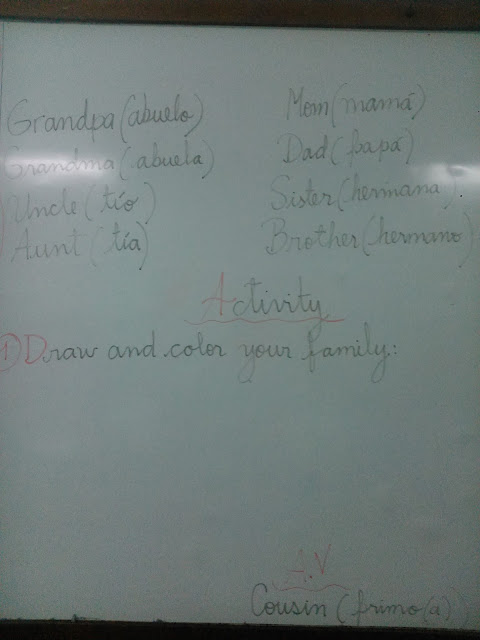 Grandpa (abuelo)
Grandma (abuela)
Uncle (tío)
Aunt (tía)
Mom (mamá)
Dad (papá)
Sister (hermana).
Brother (hermano)
Activity
1) Draw and color your family:
A.V
Cousin (primo(a))